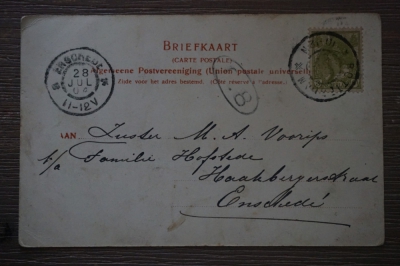 BRIEFKAART
(CARTE POSTALE)
Algemeene Postvereeniging (Union postale universelle)
Zijde voor het adres bestemd. (Côté réservé à l'adresse.)
ENSCHEDE
28
JUL
11-12V
8
AAN
Zuster M. A. Voorips
p/a Familie Hofstede
Haaksbergerstraat
Enschedé